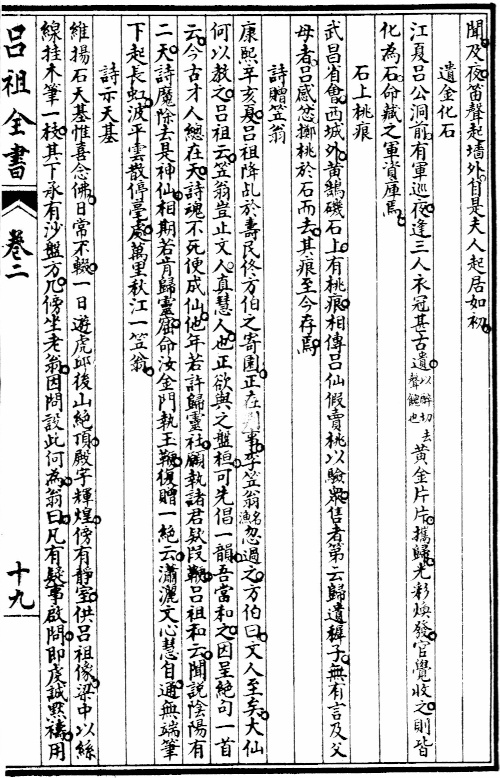 聞及夜笛聲起墻外自是夫人起居如初
遺金化石
江夏呂公洞前有軍巡夜逢三人衣冠甚古遺以醉切聲饋也去黃金片片攜歸光彩煥發官覺收之則皆
化為石命藏之軍資庫焉
石上桃痕
武昌省會西城外黃鵠磯石上有桃痕相傳呂仙假賣桃以驗衆售者第云歸遺穉子無有言及父
母者呂感忿擲桃於石而去其痕至今存焉
詩贈笠翁
康熙辛亥夏呂祖降乩於壽民佟方伯之寄園正在判事李笠翁名漁忽過之方伯曰文人至矣大仙
何以教之呂祖云笠翁豈止文人真慧人也正欲與之盤桓可先倡一韻吾當和之因呈絕句一首
云今古才人總在天詩魂不死便成仙他年若許歸靈社願執諸君欵段鞭呂祖和云聞說陰陽有
二天詩魔除去是神仙相期若肯歸靈窟命汝金門執玉鞭復贈一絕云瀟灑文心慧自通無端筆
下起長虹波平雲散停毫處萬里秋江一笠翁
詩示天基
維揚石天基惟喜念佛日常不輟一日遊虎邱後山絕頂殿宇輝煌傍有靜室供呂祖像梁中以絲
線挂木筆一枝其下承有沙盤方几傍坐老翁因問設此何為翁曰凡有疑事啟問即虔誠默禱用
呂祖全書
卷二
十九